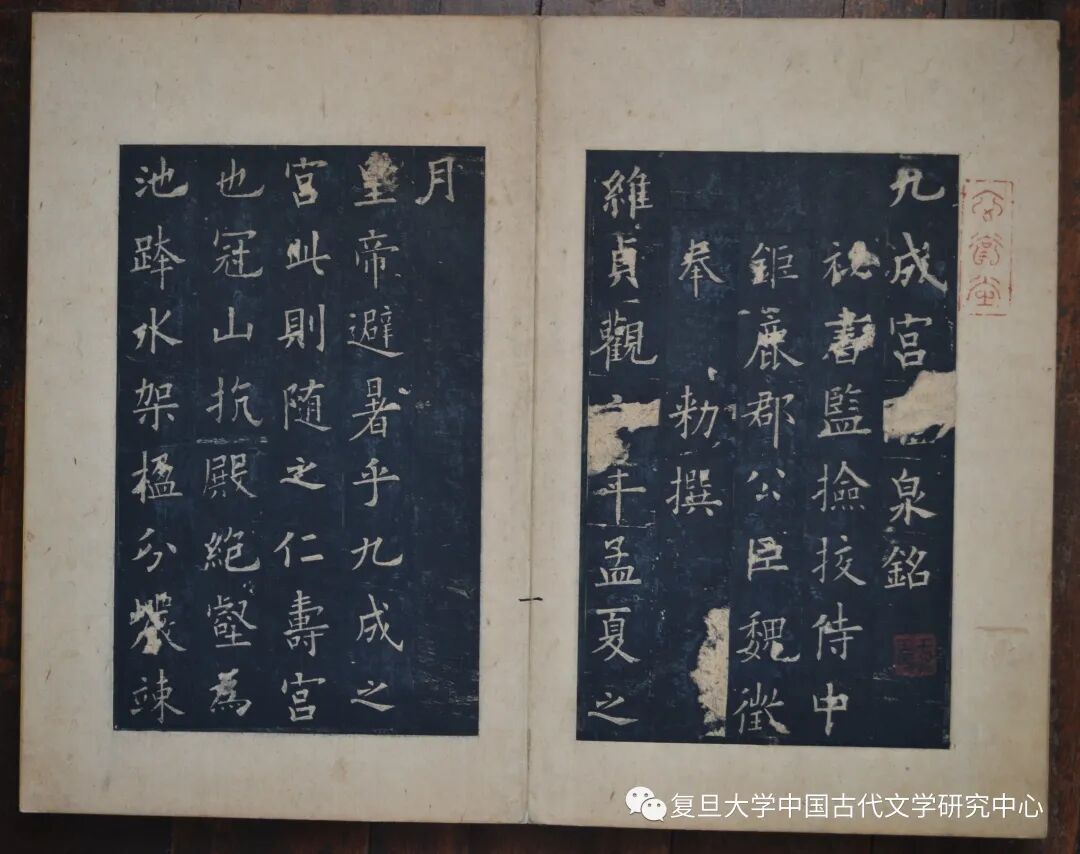 九成宮泉銘
祕書監撿挍侍中
鉅鹿郡公臣魏徵
奉勑撰
維貞觀年孟夏之
月
皇帝避暑乎九成之
宮此則随之仁壽宮
也冠山抗殿絶壑為
池跨水架楹分巖竦
复旦大学中国古代文学研究中心